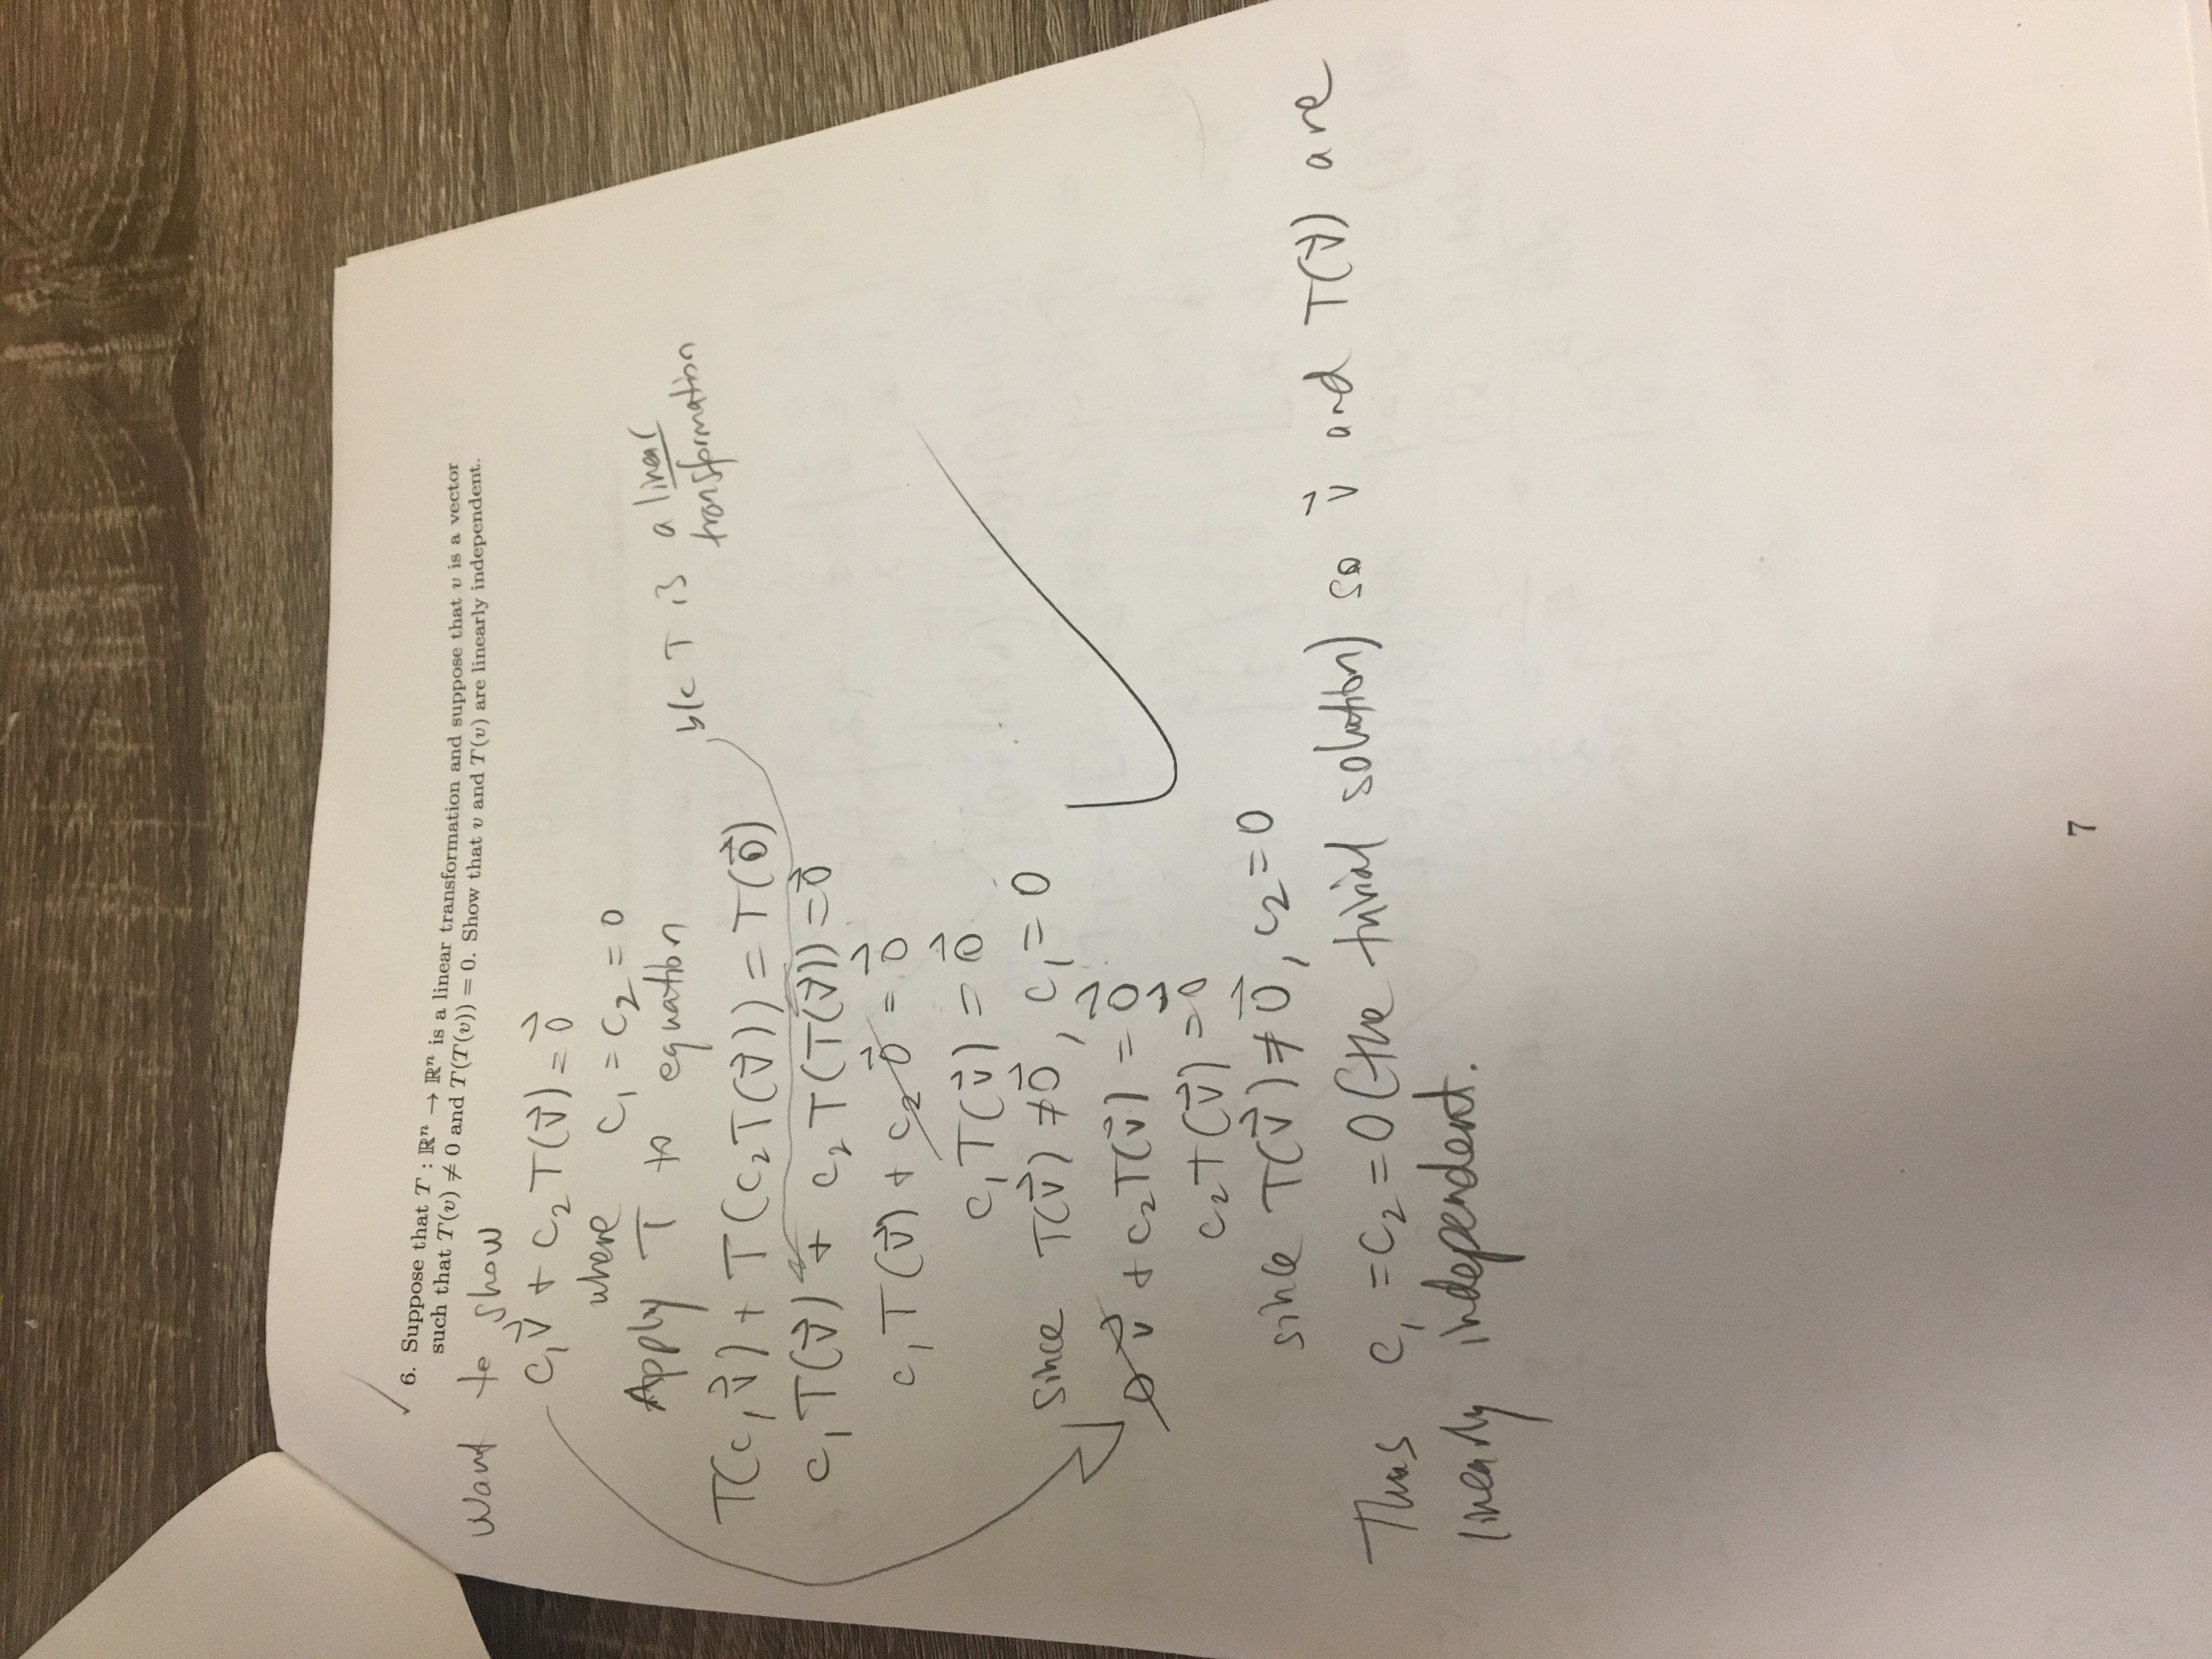 6. Suppose that T : ℝⁿ → ℝⁿ is a linear transformation and suppose that v is a vector
such that T(v) ≠ 0 and T(T(v)) = 0. Show that v and T(v) are linearly independent.
Want to show
c₁v⃗ + c₂T(v⃗) = 0⃗
where c₁ = c₂ = 0
Apply T to equation
b/c T is a linear
transformation
T(c₁v⃗) + T(c₂T(v⃗)) = T(0⃗)
c₁T(v⃗) + c₂T(T(v⃗)) = 0⃗
c₁T(v⃗) + c₂0⃗ = 0⃗
c₁T(v⃗) = 0⃗
since T(v⃗) ≠ 0⃗, c₁ = 0
0v⃗ + c₂T(v⃗) = 0⃗
c₂T(v⃗) = 0⃗
since T(v⃗) ≠ 0⃗, c₂ = 0
Thus c₁ = c₂ = 0 (the trivial solution) so v⃗ and T(v⃗) are
linearly independent.
7